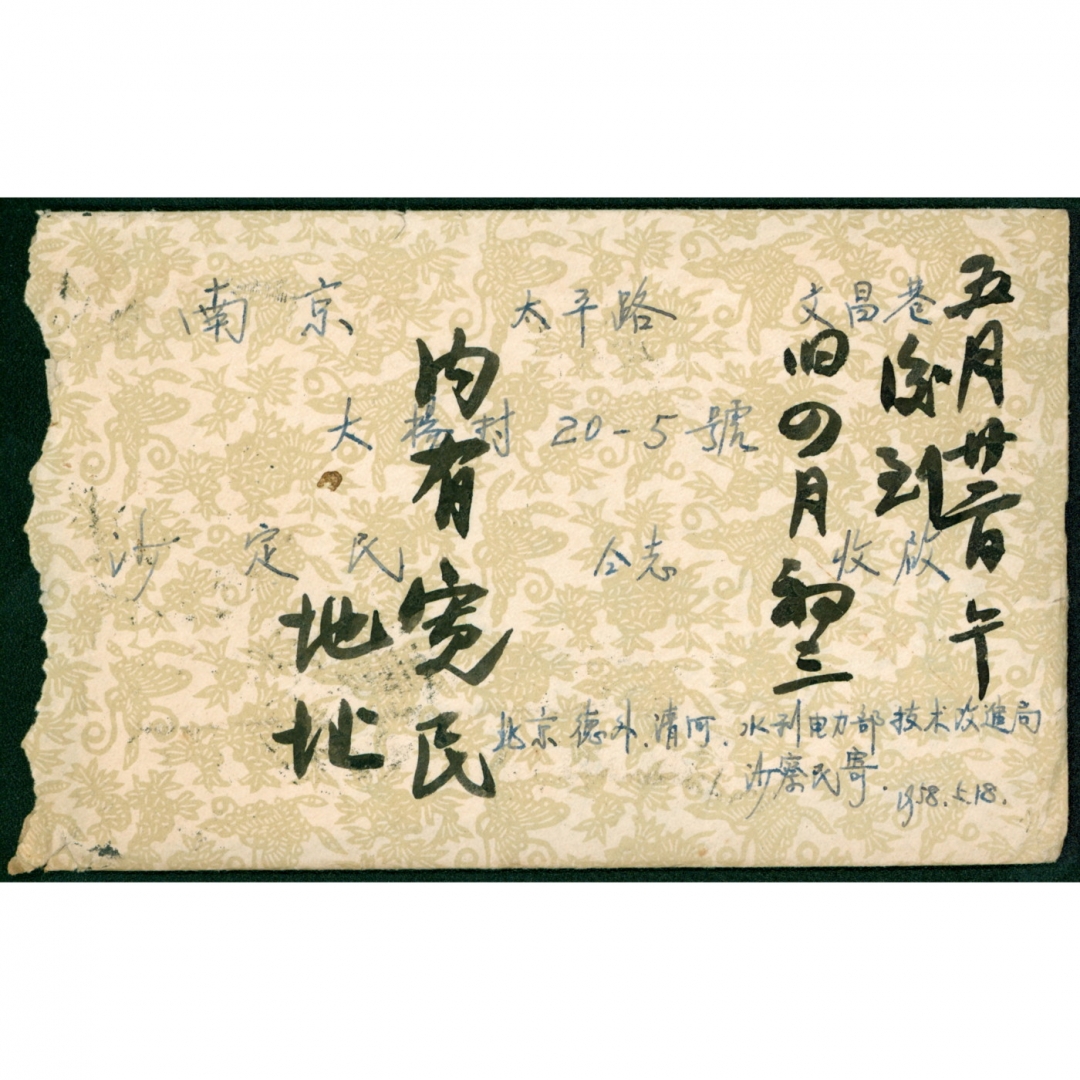 南京 太平路 文昌巷
大楊村 20-5號
沙定民 仝志 收啟
北京德外.清河.水利电力部技术改進局
沙察民寄.
1958.5.18.
五月廿一日午
後到
旧四月初三
内有宽民
地址